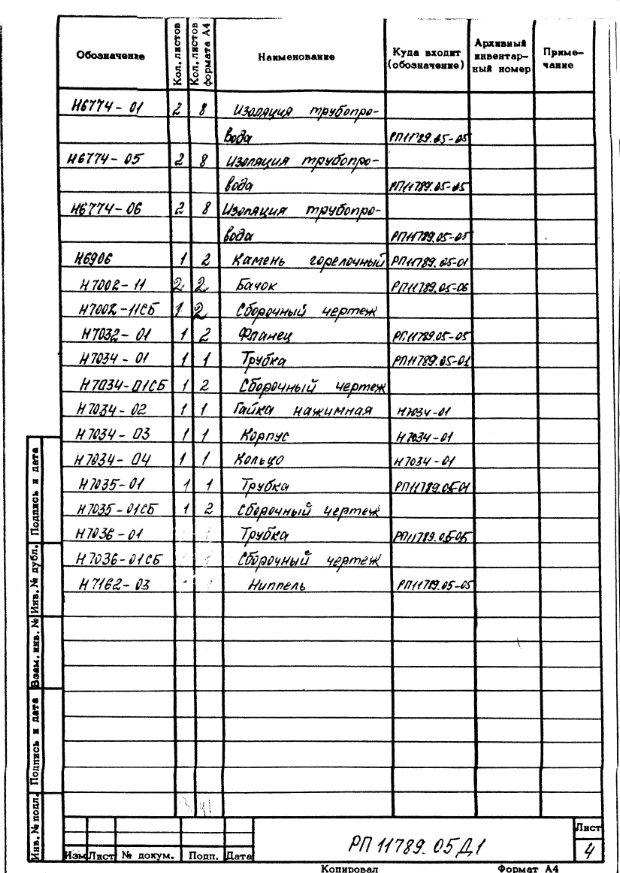 Обозначение Кол. листов Кол. листов формата А4 Наименование Куда входит (обозначение) Архивный инвентар-ный номер Приме-чание
Н6774-01 2 8 Изоляция трубопро-
вода РП11789.05-05
Н6774-05 2 8 Изоляция трубопро-
вода РП11789.05-05
Н6774-06 2 8 Изоляция трубопро-
вода РП11789.05-05
Н6906 1 2 Камень горелочный РП11789.05-01
Н7002-11 2 2 Бачок РП11789.05-06
Н7002-11СБ 1 2 Сборочный чертеж
Н7032-01 1 2 Фланец РП11789.05-05
Н7034-01 1 1 Трубка РП11789.05-01
Н7034-01СБ 1 2 Сборочный чертеж
Н7034-02 1 1 Гайка нажимная Н7034-01
Н7034-03 1 1 Корпус Н7034-01
Н7034-04 1 1 Кольцо Н7034-01
Н7035-01 1 1 Трубка РП11789.05-01
Н7035-01СБ 1 2 Сборочный чертеж
Н7036-01 Трубка
Н7036-01СБ Сборочный чертеж
Н7162-03 Ниппель РП11789.05-05
Инв. № подл. Подпись и дата Взам. инв. № Инв. № дубл. Подпись и дата
Изм Лист № докум. Подп. Дата
РП 11789.05Д1
Лист
4
Копировал Формат А4